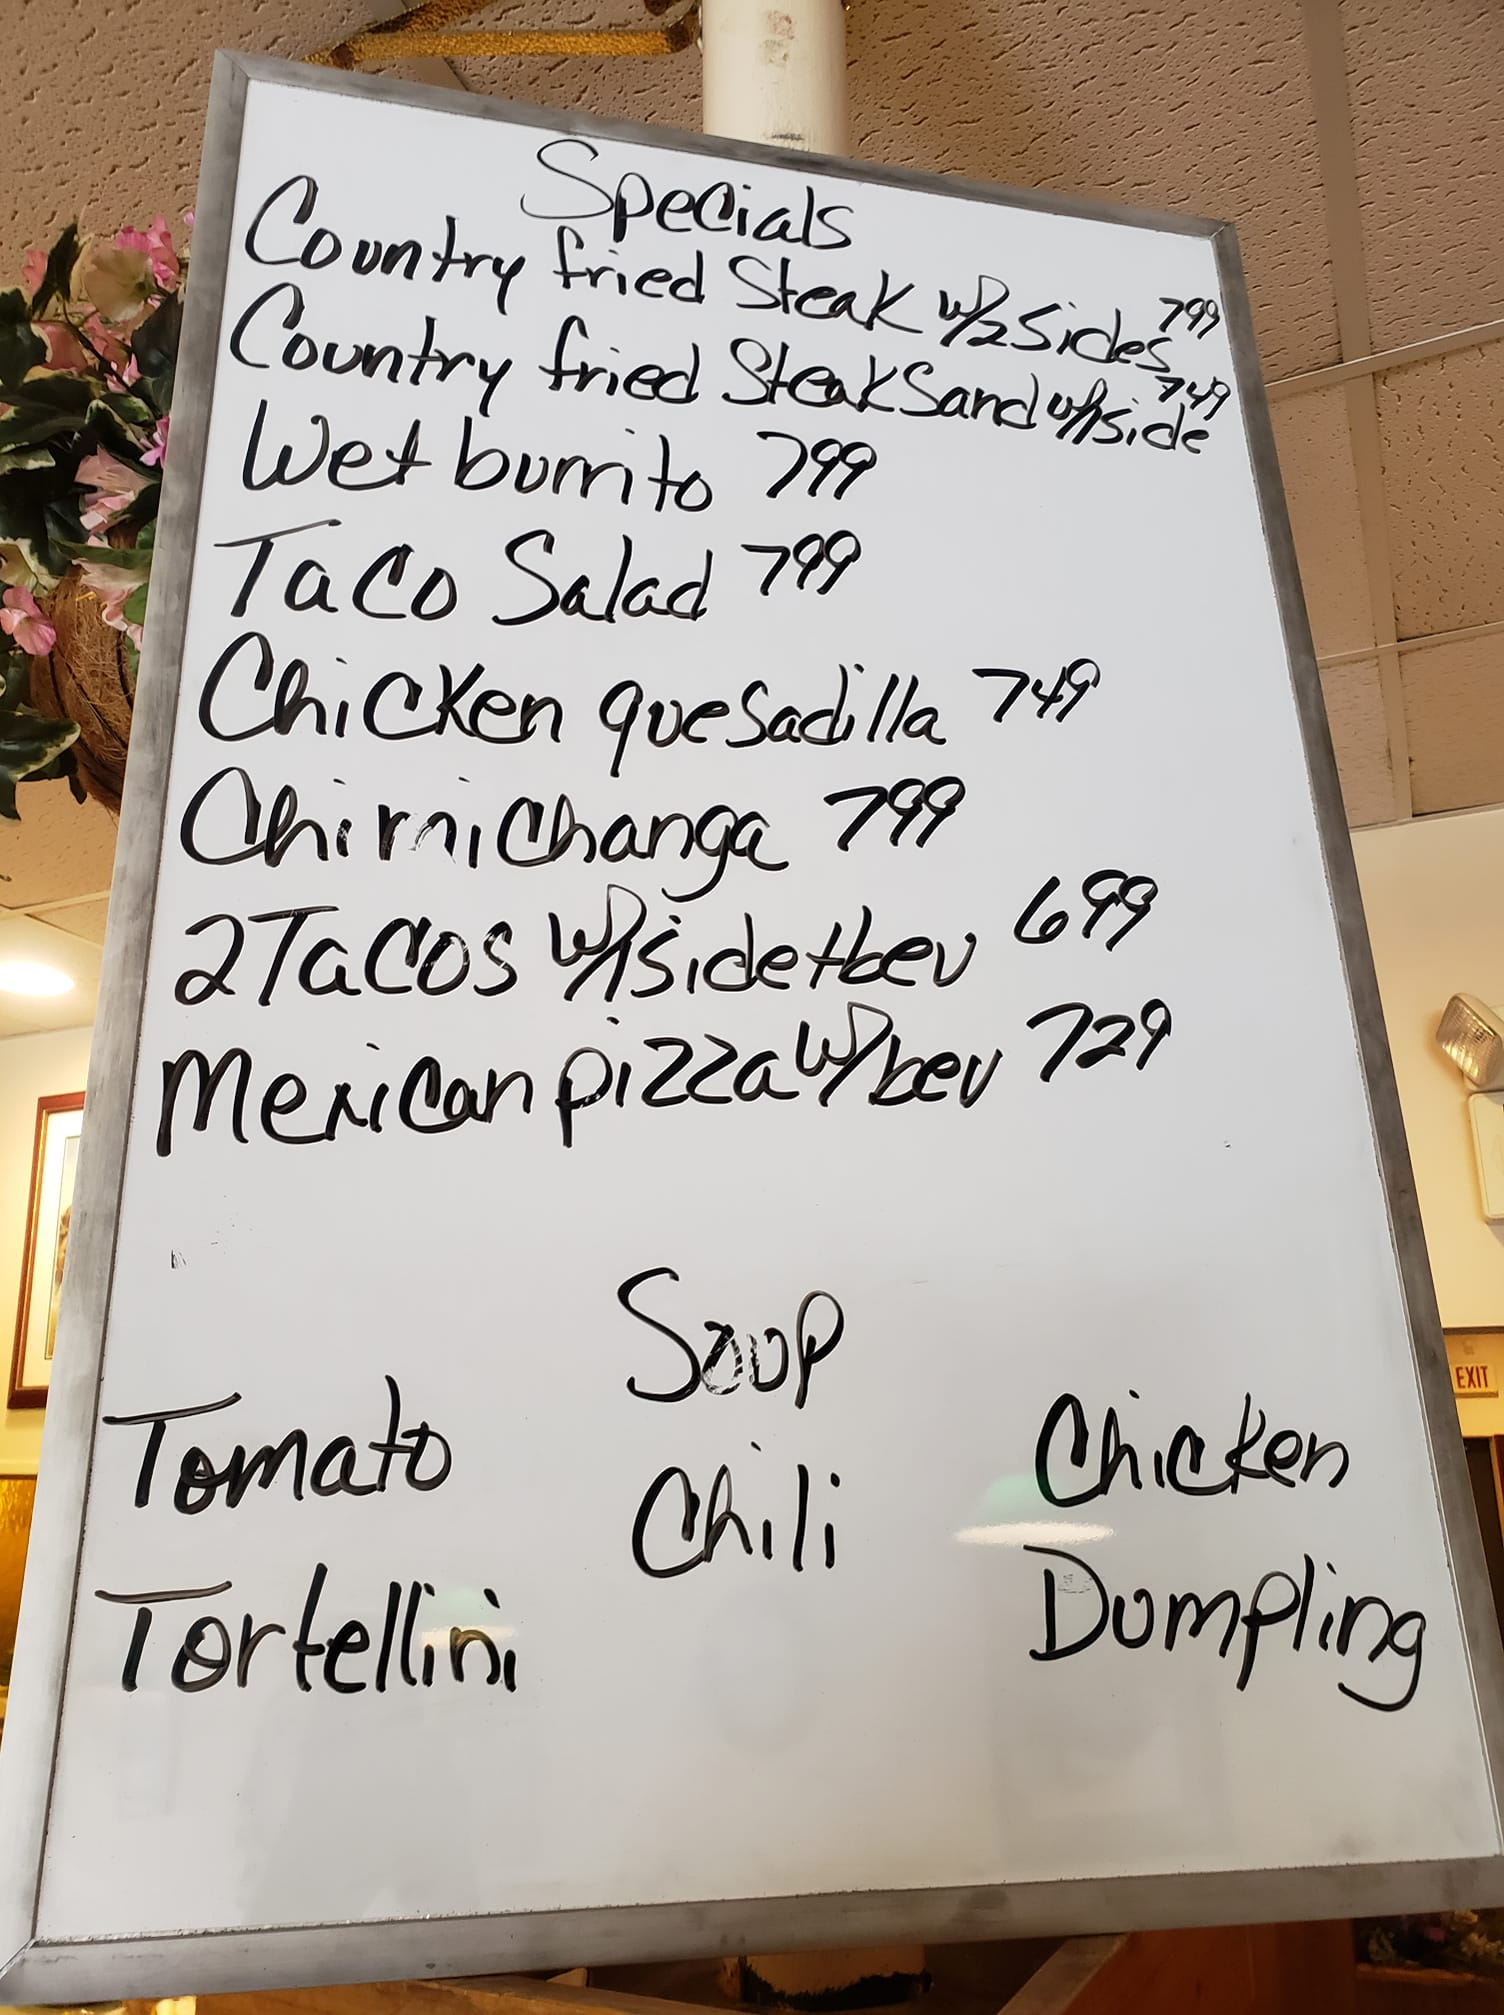 Specials
Country fried Steak w/2 Sides 799
Country fried Steak Sand w/1 side 749
Wet burrito 799
Taco Salad 799
Chicken quesadilla 749
Chimichanga 799
2 Tacos w/1 side + bev 699
Mexican pizza w/ bev 729
Soup
Tomato
Tortellini
Chili
Chicken
Dumpling
EXIT